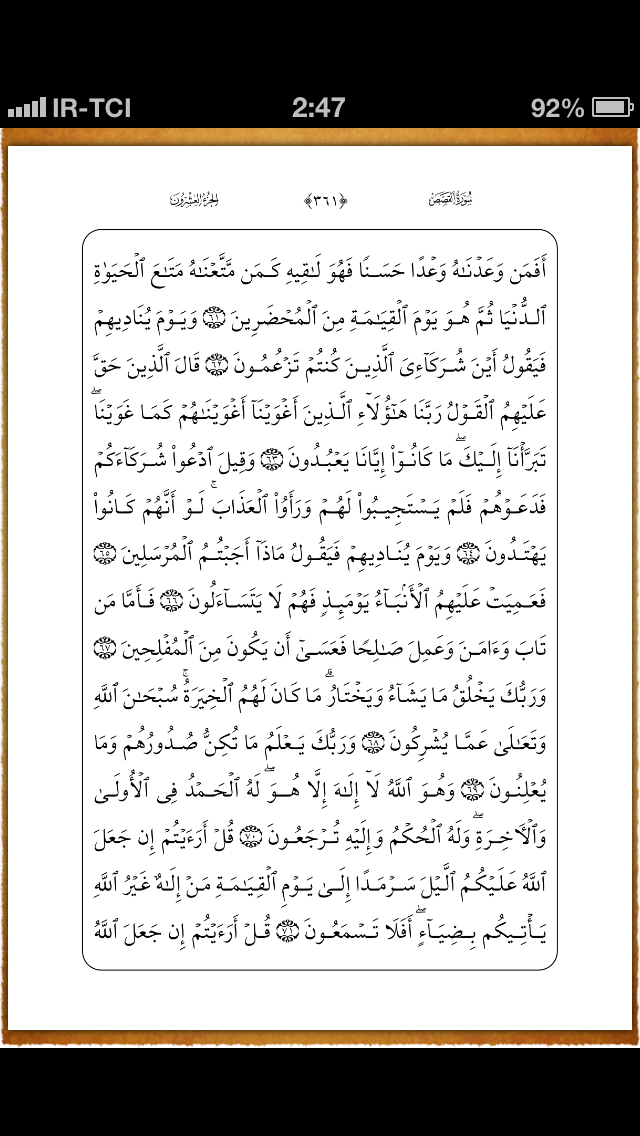 IR-TCI 2:47 92%
سُورَةُ القَصَص ﴿٣٦١﴾ الجُزءُ العِشرُون
أَفَمَن وَعَدۡنَٰهُ وَعۡدًا حَسَنٗا فَهُوَ لَٰقِيهِ كَمَن مَّتَّعۡنَٰهُ مَتَٰعَ ٱلۡحَيَوٰةِ
ٱلدُّنۡيَا ثُمَّ هُوَ يَوۡمَ ٱلۡقِيَٰمَةِ مِنَ ٱلۡمُحۡضَرِينَ ٦١ وَيَوۡمَ يُنَادِيهِمۡ
فَيَقُولُ أَيۡنَ شُرَكَآءِيَ ٱلَّذِينَ كُنتُمۡ تَزۡعُمُونَ ٦٢ قَالَ ٱلَّذِينَ حَقَّ
عَلَيۡهِمُ ٱلۡقَوۡلُ رَبَّنَا هَٰٓؤُلَآءِ ٱلَّذِينَ أَغۡوَيۡنَآ أَغۡوَيۡنَٰهُمۡ كَمَا غَوَيۡنَاۖ
تَبَرَّأۡنَآ إِلَيۡكَۖ مَا كَانُوٓاْ إِيَّانَا يَعۡبُدُونَ ٦٣ وَقِيلَ ٱدۡعُواْ شُرَكَآءَكُمۡ
فَدَعَوۡهُمۡ فَلَمۡ يَسۡتَجِيبُواْ لَهُمۡ وَرَأَوُاْ ٱلۡعَذَابَۚ لَوۡ أَنَّهُمۡ كَانُواْ
يَهۡتَدُونَ ٦٤ وَيَوۡمَ يُنَادِيهِمۡ فَيَقُولُ مَاذَآ أَجَبۡتُمُ ٱلۡمُرۡسَلِينَ ٦٥
فَعَمِيَتۡ عَلَيۡهِمُ ٱلۡأَنۢبَآءُ يَوۡمَئِذٖ فَهُمۡ لَا يَتَسَآءَلُونَ ٦٦ فَأَمَّا مَن
تَابَ وَءَامَنَ وَعَمِلَ صَٰلِحٗا فَعَسَىٰٓ أَن يَكُونَ مِنَ ٱلۡمُفۡلِحِينَ ٦٧
وَرَبُّكَ يَخۡلُقُ مَا يَشَآءُ وَيَخۡتَارُۗ مَا كَانَ لَهُمُ ٱلۡخِيَرَةُۚ سُبۡحَٰنَ ٱللَّهِ
وَتَعَٰلَىٰ عَمَّا يُشۡرِكُونَ ٦٨ وَرَبُّكَ يَعۡلَمُ مَا تُكِنُّ صُدُورُهُمۡ وَمَا
يُعۡلِنُونَ ٦٩ وَهُوَ ٱللَّهُ لَآ إِلَٰهَ إِلَّا هُوَۖ لَهُ ٱلۡحَمۡدُ فِي ٱلۡأُولَىٰ
وَٱلۡأٓخِرَةِۖ وَلَهُ ٱلۡحُكۡمُ وَإِلَيۡهِ تُرۡجَعُونَ ٧٠ قُلۡ أَرَءَيۡتُمۡ إِن جَعَلَ
ٱللَّهُ عَلَيۡكُمُ ٱلَّيۡلَ سَرۡمَدًا إِلَىٰ يَوۡمِ ٱلۡقِيَٰمَةِ مَنۡ إِلَٰهٌ غَيۡرُ ٱللَّهِ
يَأۡتِيكُم بِضِيَآءٍۖ أَفَلَا تَسۡمَعُونَ ٧١ قُلۡ أَرَءَيۡتُمۡ إِن جَعَلَ ٱللَّهُ